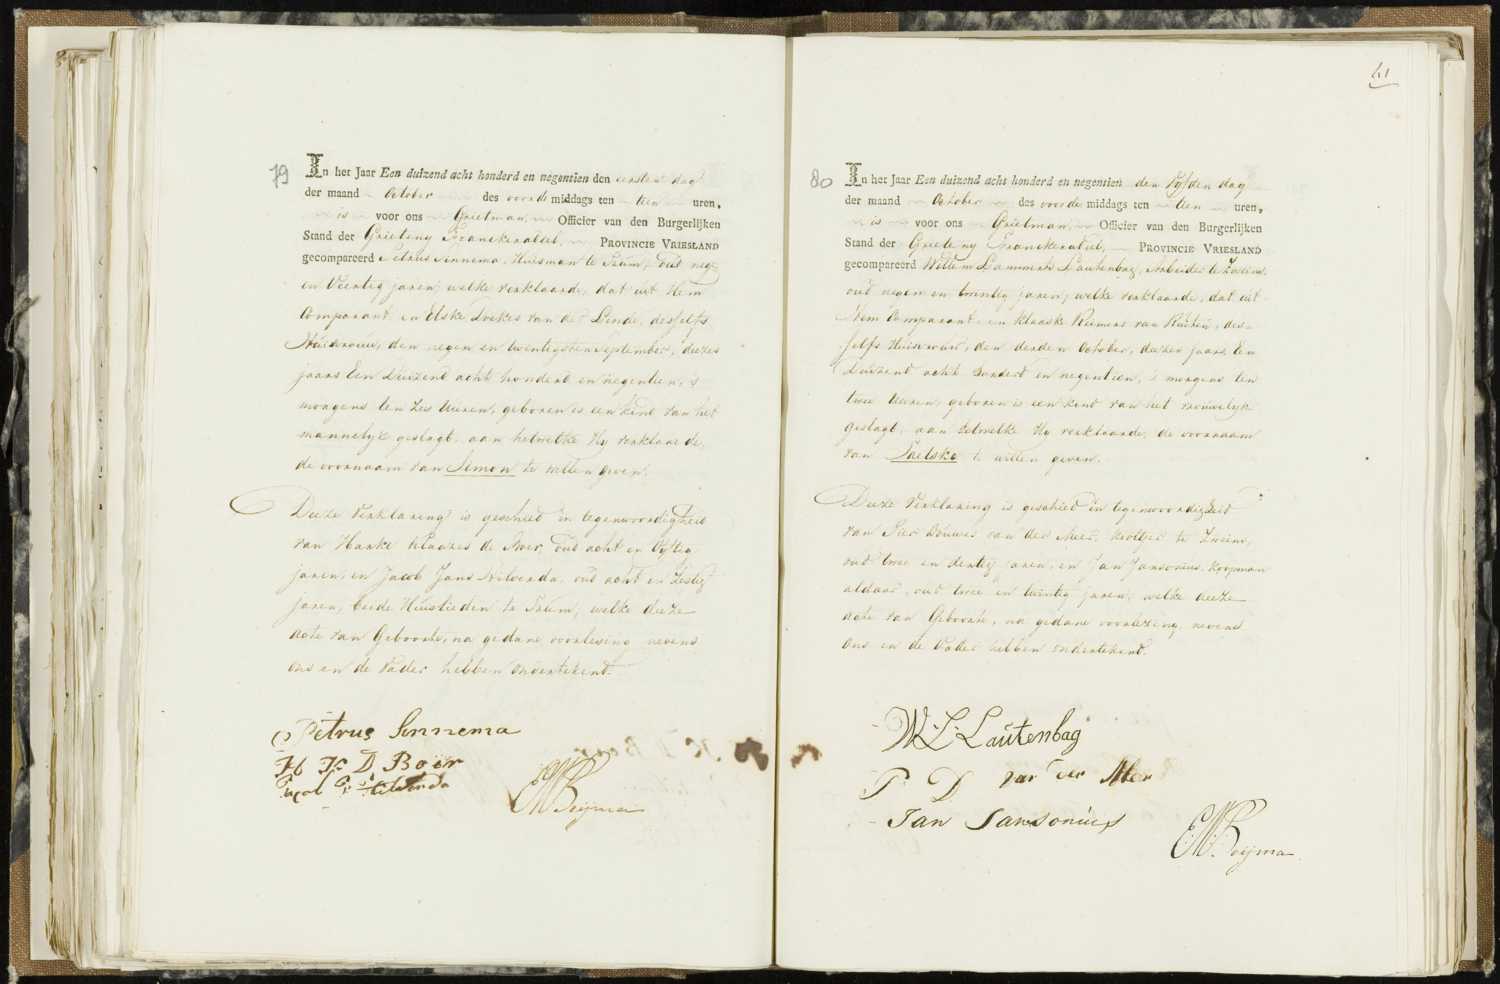 79
In het Jaar Een duizend acht honderd en negentien den eersten dag
der maand October des voorde middags ten tien uren,
is voor ons Grietman, Officier van den Burgerlijken
Stand der Grieteny Franekeradeel, PROVINCIE VRIESLAND
gecompareerd Petrus Sinnema, Huisman te Peum, oud neg
en Veertig jaren; welke verklaarde, dat uit Hem
Comparant en Elske Doekes van der Linde, desselfs
Huisvrouw, den negen en twentigsten September, deezes
jaars Een Duizend acht honderd en negentien, 's
morgens ten zes Uuren, geboren is een kind van het
mannelyk geslagt, aan hetwelke Hy verklaarde,
de voornaam van Simon te willen geven.
Deeze Verklaring is geschied in tegenwoordigheid
van Hanke Klaazes de Boer, oud acht en Vyftig
jaren, en Jacob Jans Hilverda, oud acht en Zestig
jaren, beide Huislieden te Peum, welke deeze
acte van Geboorte, na gedane voorlesing nevens
ons en de Vader hebben ondertekent.
Petrus Sinnema
H K D Boer
Jacob J Hilverda
41
80
In het Jaar Een duizend acht honderd en negentien den Vyfden dag
der maand October des voorde middags ten tien uren,
is voor ons Grietman, Officier van den Burgerlijken
Stand der Grieteny Franekeradeel, PROVINCIE VRIESLAND
gecompareerd Willem Lammerts Lautenbag, Arbeider te Zweins,
oud negen en twentig jaren; welke verklaarde, dat uit
Hem Comparant, en Klaaske Riemers van Ruiten, des-
selfs Huisvrouw, den derden October, deezer jaars Een
Duizend acht honderd en negentien, 's morgens ten
twee Uuren, geboren is een kint van het vrouwelyk
geslagt, aan hetwelke Hy verklaarde, de voornaam
van Taetske te willen geven.
Deeze Verklaring is geschied in tegenwoordigheid
van Pier Douwes van der Meer, te Zweins,
oud twee en dertig jaren, en Jan Jansonius, Koopman
aldaar, oud twee en twintig jaren, welke deeze
acte van Geboorte, na gedane voorlezing, nevens
ons en de Vader hebben ondertekent.
W. L. Lautenbag
P D van der Meer
Jan Jansonius